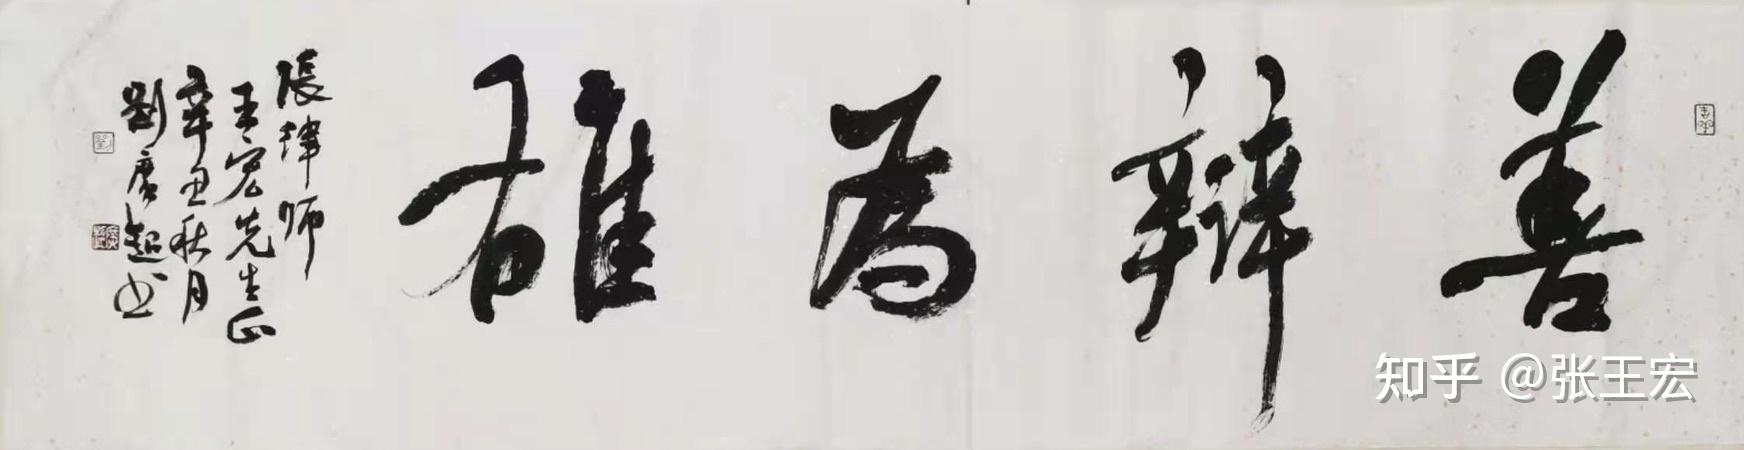 善辯為雄
張律师
王宏先生正
辛丑秋月
劉唐超书
知乎 @张王宏